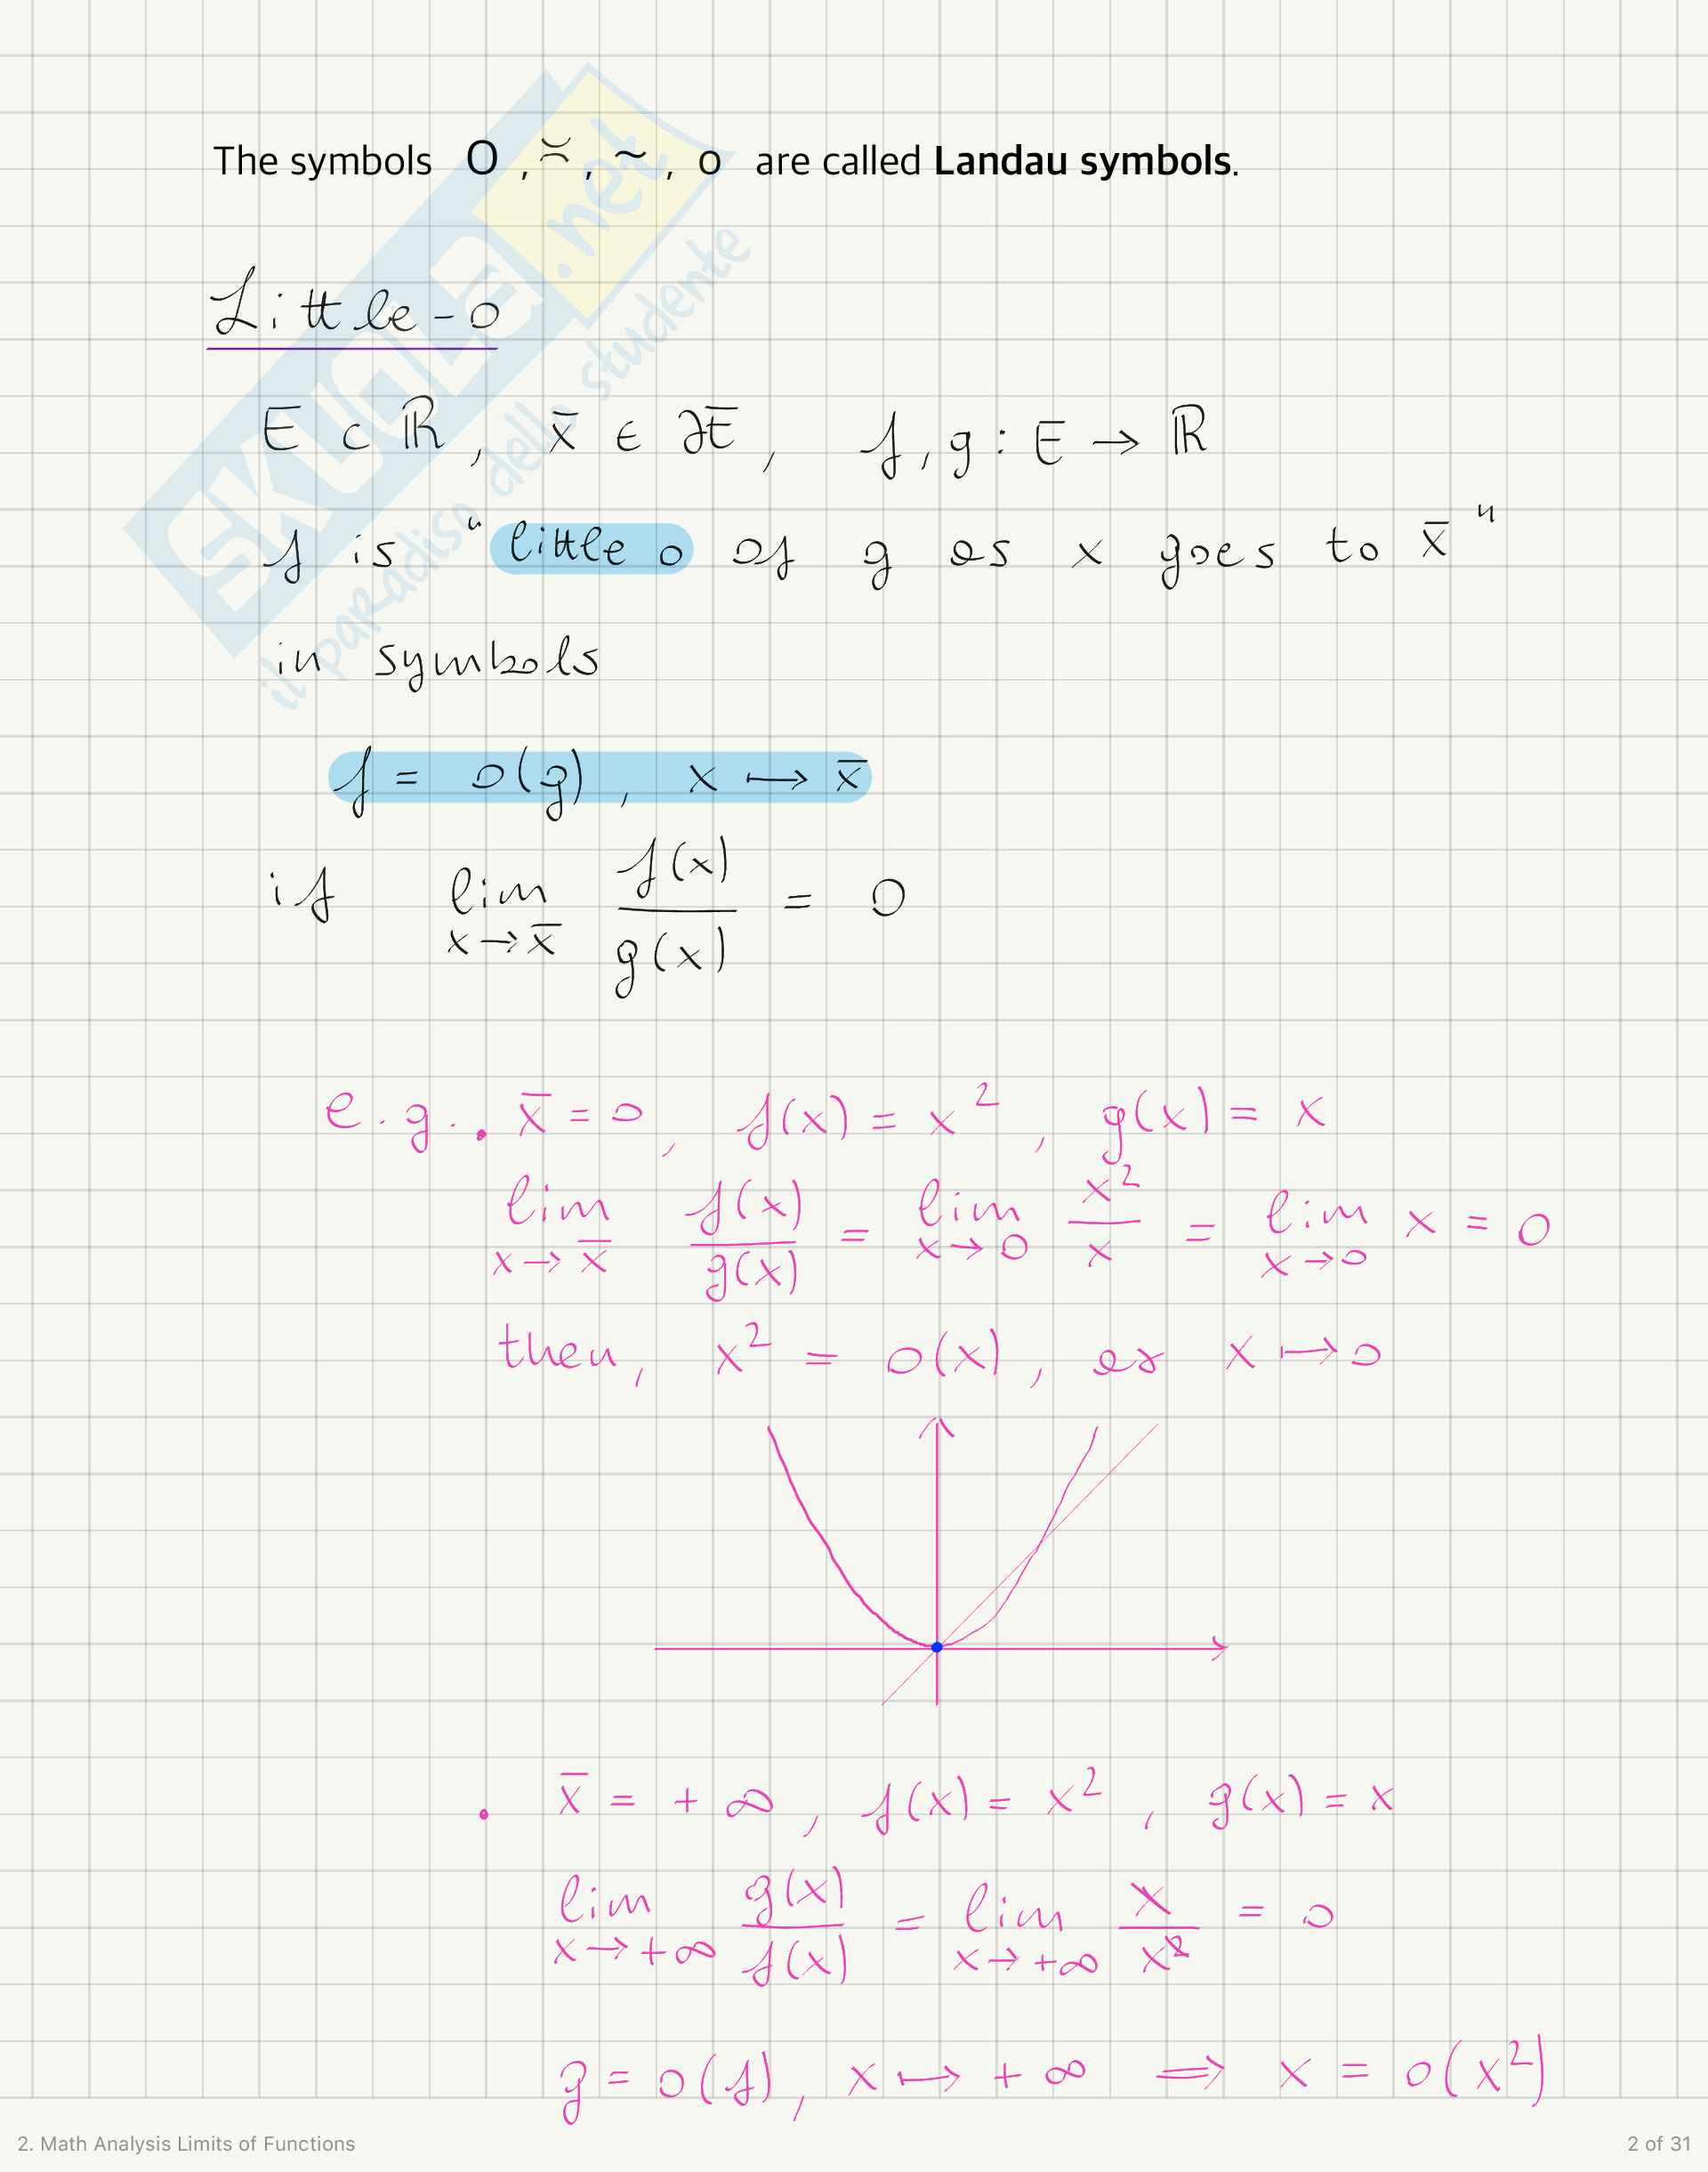 The symbols O , ≍ , ~ , o are called Landau symbols.
Little-o
E ⊂ ℝ , x̄ ∈ ∂E , f, g : E → ℝ
f is "little o of g as x goes to x̄"
in symbols
f = o(g) , x ⟼ x̄
if lim x→x̄ f(x)/g(x) = 0
e.g. • x̄ = 0 , f(x) = x² , g(x) = x
lim x→x̄ f(x)/g(x) = lim x→0 x²/x = lim x→0 x = 0
then, x² = o(x) , as x ⟼ 0
• x̄ = +∞ , f(x) = x² , g(x) = x
lim x→+∞ g(x)/f(x) = lim x→+∞ x/x² = 0
g = o(f) , x ⟼ +∞ ⟹ x = o(x²)
SKUOLa.net
il paradiso dello studente
2. Math Analysis Limits of Functions
2 of 31